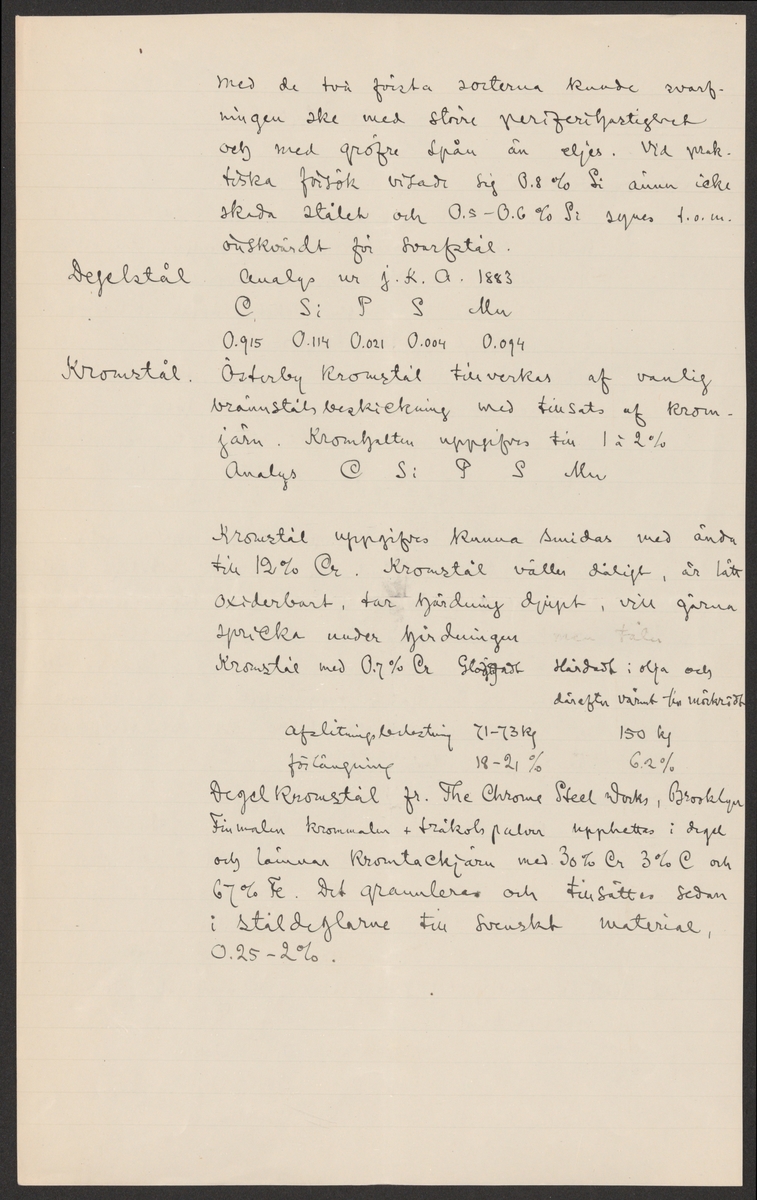 med de två första sorterna kunde svarf-
ningen ske med större periferihastighet
och med gröfre spån än eljes. Vid prak-
tiska försök visade sig 0.8 % Si ännu icke
skada stålet och 0.5-0.6 % Si synes t.o.m.
önskvärdt för svarfstål.
Degelstål Analys ur J.K.A. 1883
C Si P S Mn
0.915 0.114 0.021 0.004 0.094
Kromstål. Österby kromstål tillverkas af vanlig
brännstålsbeskickning med tillsats af krom-
järn. Kromhalten uppgifves till 1 à 2 %
Analys C Si P S Mn
Kromstål uppgifves kunna smidas med ända
till 12 % Cr. Kromstål väller dåligt, är lätt
oxiderbart, tar härdning djupt, vill gärna
spricka under härdningen men tåler
Kromstål med 0.7 % Cr Glödgadt Härdadt i olja och
därefter värmt t/m mörkrödt
Afslitningsbelastning 71-73 kg 150 kg
förlängning 18-21 % 6.2 %
Degelkromstål fr. The Chrome Steel Works, Brooklyn
Finmalen krommalm + träkolspulver upphettas i degel
och lämnar kromtackjärn med 30 % Cr 3 % C och
67 % Fe. Det granuleras och tillsättes sedan
i ståldeglarne till svenskt material,
0.25-2 %.